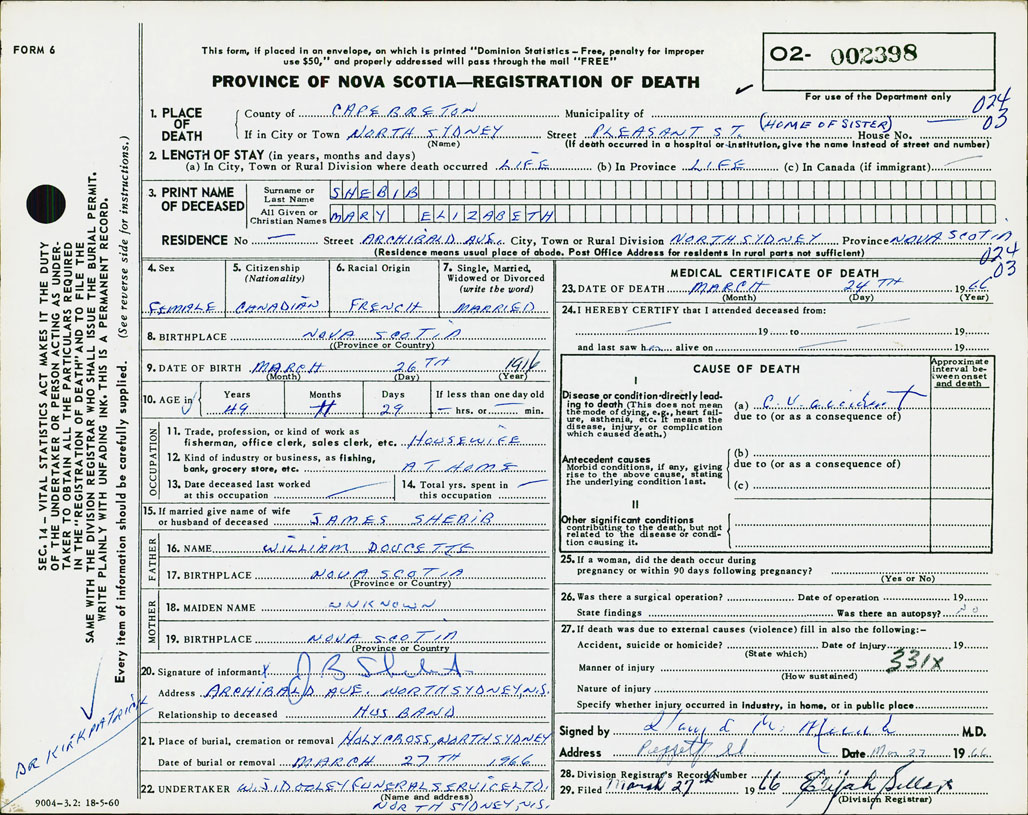 FORM 6
This form, if placed in an envelope, on which is printed "Dominion Statistics – Free, penalty for improper
use $50," and properly addressed will pass through the mail "FREE"
PROVINCE OF NOVA SCOTIA—REGISTRATION OF DEATH
02- 002398
For use of the Department only
024
03
1. PLACE OF DEATH
County of CAPE BRETON Municipality of
If in City or Town NORTH SYDNEY Street PLEASANT ST. (HOME OF SISTER) House No. —
(Name) (If death occurred in a hospital or institution, give the name instead of street and number)
2. LENGTH OF STAY (in years, months and days)
(a) In City, Town or Rural Division where death occurred LIFE (b) In Province LIFE (c) In Canada (if immigrant)
3. PRINT NAME OF DECEASED
Surname or Last Name SHEBIB
All Given or Christian Names MARY ELIZABETH
RESIDENCE No — Street ARCHIBALD AVE. City, Town or Rural Division NORTH SYDNEY Province NOVA SCOTIA
(Residence means usual place of abode. Post Office Address for residents in rural parts not sufficient)
024
03
4. Sex FEMALE
5. Citizenship (Nationality) CANADIAN
6. Racial Origin FRENCH
7. Single, Married, Widowed or Divorced (write the word) MARRIED
8. BIRTHPLACE NOVA SCOTIA
(Province or Country)
9. DATE OF BIRTH MARCH 26TH 1916
(Month) (Day) (Year)
10. AGE in Years 49 Months 11 Days 29 If less than one day old — hrs. or — min.
OCCUPATION
11. Trade, profession, or kind of work as
fisherman, office clerk, sales clerk, etc. HOUSEWIFE
12. Kind of industry or business, as fishing,
bank, grocery store, etc. AT HOME
13. Date deceased last worked
at this occupation
14. Total yrs. spent in
this occupation
15. If married give name of wife
or husband of deceased JAMES SHEBIB
FATHER
16. NAME WILLIAM DOUCETTE
17. BIRTHPLACE NOVA SCOTIA
(Province or Country)
MOTHER
18. MAIDEN NAME UNKNOWN
19. BIRTHPLACE NOVA SCOTIA
(Province or Country
20. Signature of informant X
Address ARCHIBALD AVE. NORTH SYDNEY, N.S.
Relationship to deceased HUSBAND
21. Place of burial, cremation or removal HOLY CROSS, NORTH SYDNEY
Date of burial or removal MARCH 27TH 1966
22. UNDERTAKER W.J. DOOLEY FUNERAL SERVICE LTD.
(Name and address) NORTH SYDNEY, N.S.
MEDICAL CERTIFICATE OF DEATH
23. DATE OF DEATH MARCH 24TH 1966
(Month) (Day) (Year)
24. I HEREBY CERTIFY that I attended deceased from:
19 to 19
and last saw h alive on 19
CAUSE OF DEATH
Approximate interval between onset and death
I
Disease or condition directly leading to death (This does not mean the mode of dying, e.g., heart failure, asthenia, etc. It means the disease, injury, or complication which caused death.)
(a) C.V. accident
due to (or as a consequence of)
Antecedent causes
Morbid conditions, if any, giving rise to the above cause, stating the underlying condition last.
(b)
due to (or as a consequence of)
(c)
II
Other significant conditions
contributing to the death, but not related to the disease or condition causing it.
25. If a woman, did the death occur during
pregnancy or within 90 days following pregnancy?
(Yes or No)
26. Was there a surgical operation? Date of operation 19
State findings Was there an autopsy? NO
27. If death was due to external causes (violence) fill in also the following:–
Accident, suicide or homicide? Date of injury 19
(State which)
331X
Manner of injury
(How sustained)
Nature of injury
Specify whether injury occurred in industry, in home, or in public place
Signed by M.D.
Address Date Mar 27 1966
28. Division Registrar's Record Number
29. Filed March 27th 1966
(Division Registrar)
SEC. 14 – VITAL STATISTICS ACT MAKES IT THE DUTY
OF THE UNDERTAKER OR PERSON ACTING AS UNDER-
TAKER TO OBTAIN ALL THE PARTICULARS REQUIRED
IN THE "REGISTRATION OF DEATH" AND TO FILE THE
SAME WITH THE DIVISION REGISTRAR WHO SHALL ISSUE THE BURIAL PERMIT.
WRITE PLAINLY WITH UNFADING INK. THIS IS A PERMANENT RECORD.
Every item of information should be carefully supplied. (See reverse side for instructions.)
DR KIRKPATRICK
9004–3.2: 18-5-60